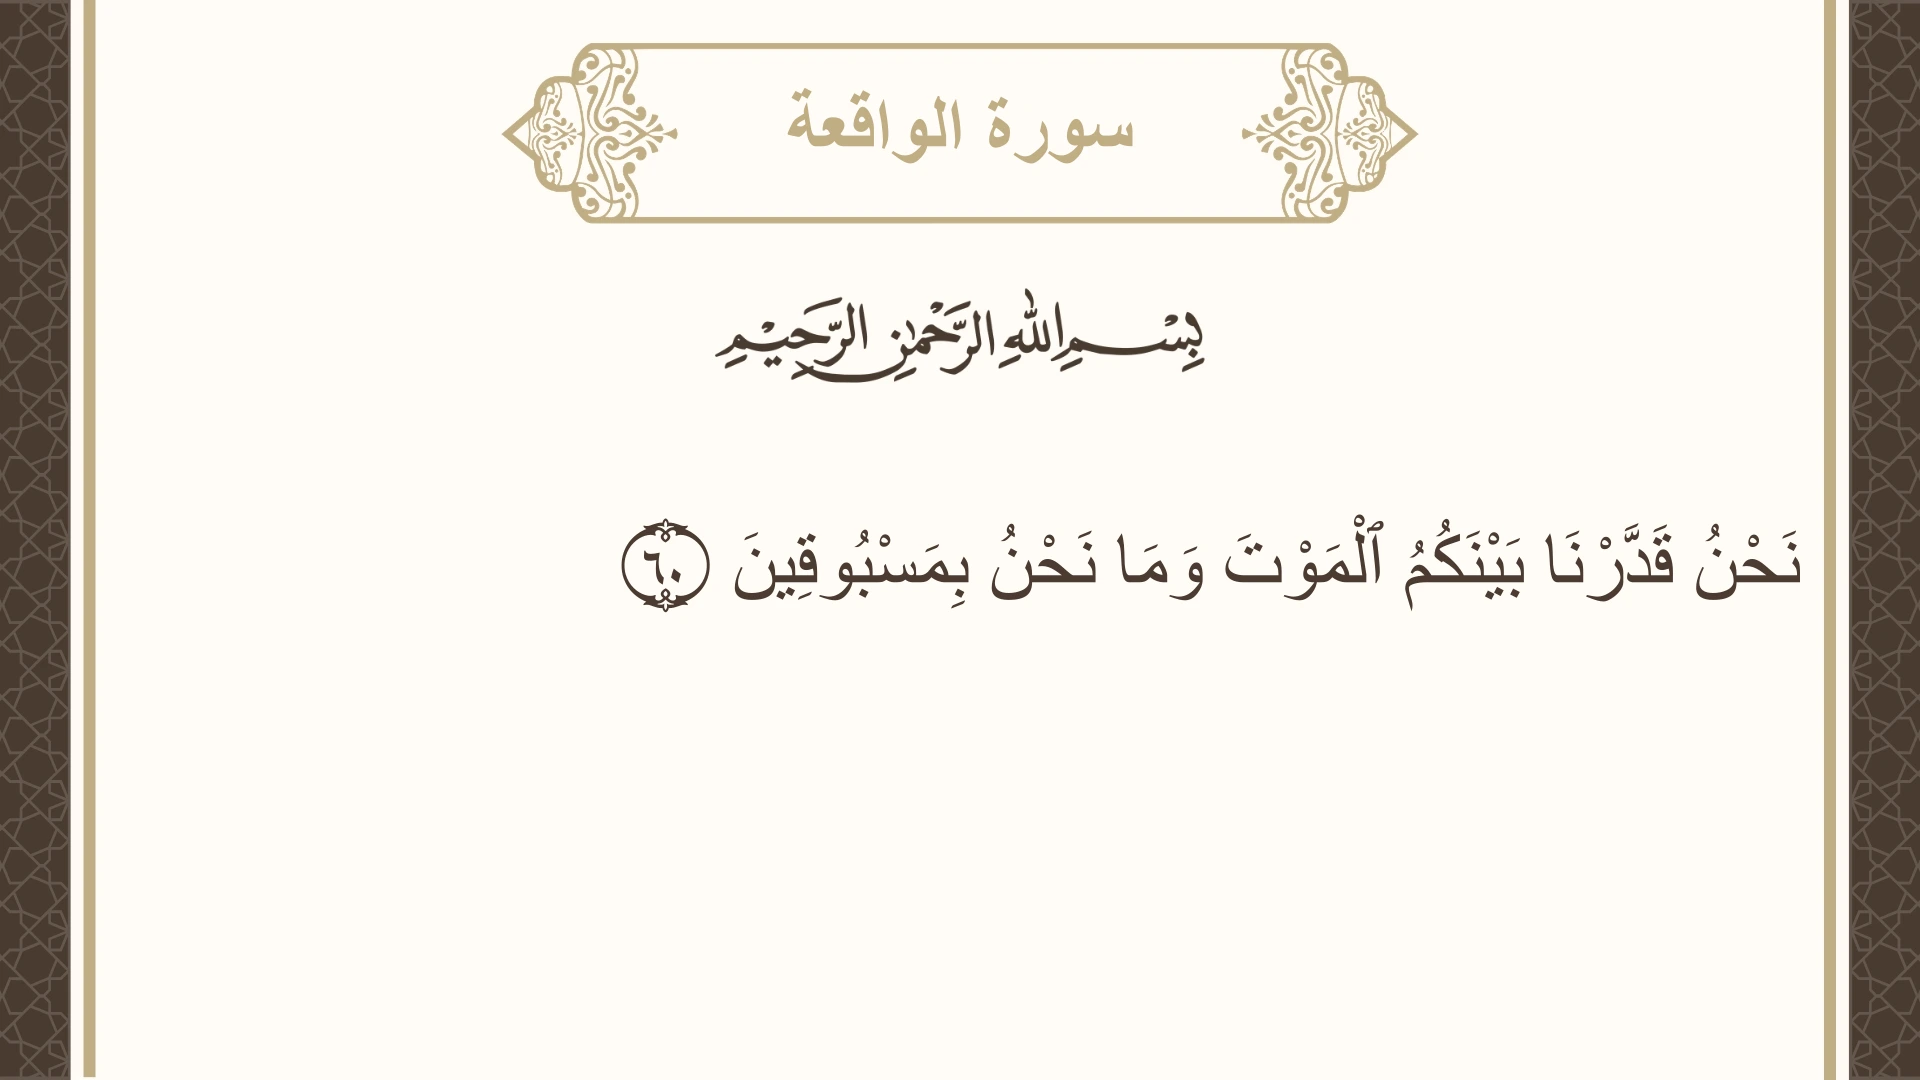 سورة الواقعة
بِسْمِ اللهِ الرَّحْمٰنِ الرَّحِيْمِ
نَحْنُ قَدَّرْنَا بَيْنَكُمُ ٱلْمَوْتَ وَمَا نَحْنُ بِمَسْبُوقِينَ ٦٠